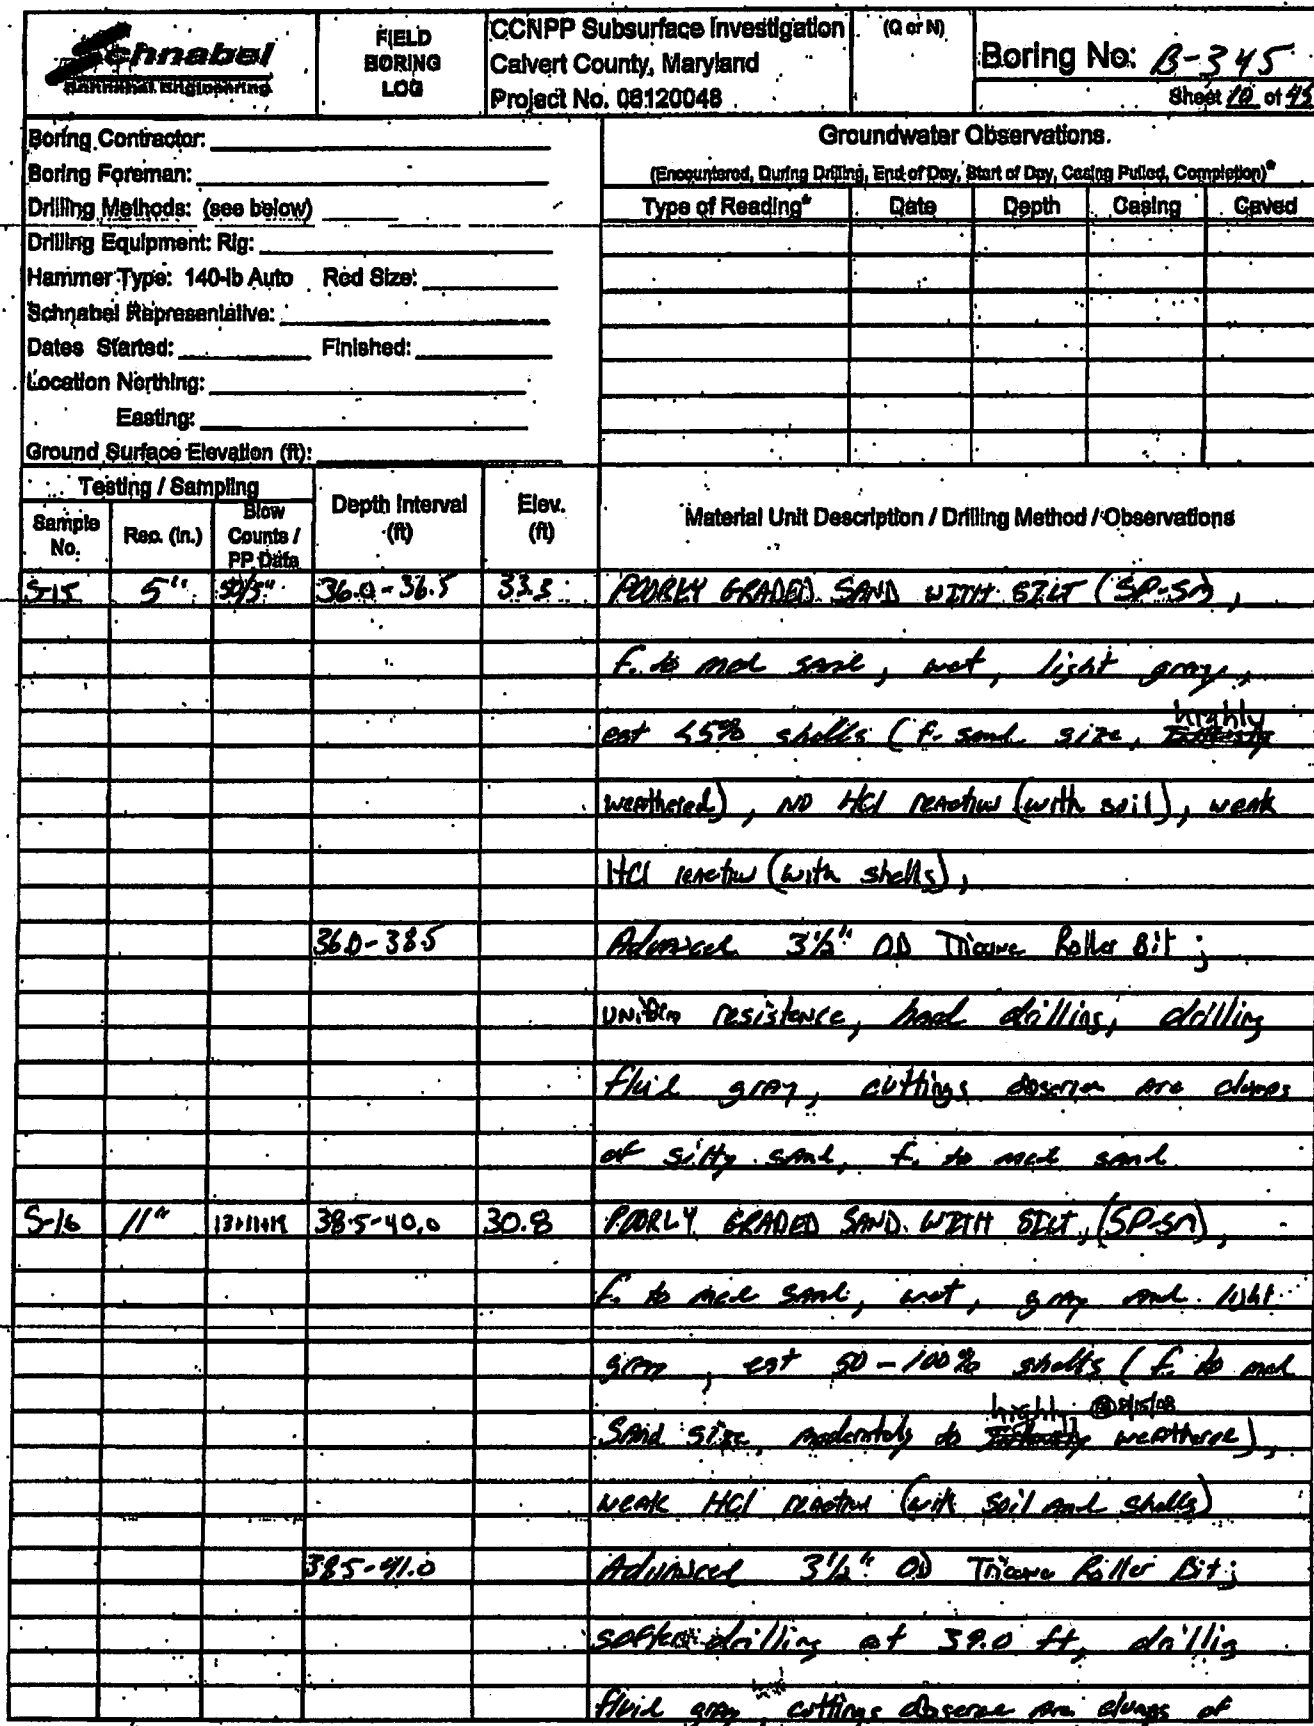 Schnabel
Schnabel Engineering
FIELD
BORING
LOG
CCNPP Subsurface Investigation
Calvert County, Maryland
Project No. 06120048
(Q or N)
Boring No: B-345
Sheet 10 of 45
Boring Contractor:
Boring Foreman:
Drilling Methods: (see below)
Drilling Equipment: Rig:
Hammer Type: 140-lb Auto Rod Size:
Schnabel Representative:
Dates Started: Finished:
Location Northing:
Easting:
Ground Surface Elevation (ft):
Groundwater Observations.
(Encountered, During Drilling, End of Day, Start of Day, Casing Pulled, Completion)*
Type of Reading* Date Depth Casing Caved
Testing / Sampling
Sample No. Rec. (in.) Blow Counts / PP Data Depth Interval (ft) Elev. (ft) Material Unit Description / Drilling Method / Observations
S-15 5" 50/5" 36.0-36.5 33.3 POORLY GRADED SAND WITH SILT (SP-SM),
f. to med sand, wet, light gray,
est <5% shells (f. sand size, highly
weathered), NO HCl reaction (with soil), weak
HCl reaction (with shells),
36.0-38.5 Advanced 3 1/2" OD Tricone Roller Bit;
uniform resistence, hard drilling, drilling
fluid gray, cuttings observe are clumps
of silty sand, f. to med sand
S-16 11" 13+11+19 38.5-40.0 30.8 POORLY GRADED SAND WITH SILT, (SP-SM),
f. to med sand, wet, gray and light
gray, est 50-100% shells (f. to med
sand size, moderately to highly 8/15/08 weatherae),
weak HCl reaction (with soil and shells)
38.5-41.0 Advanced 3 1/2" OD Tricone Roller Bit;
softer drilling at 39.0 ft, drillig
fluid gray, cuttings observe are clumps of